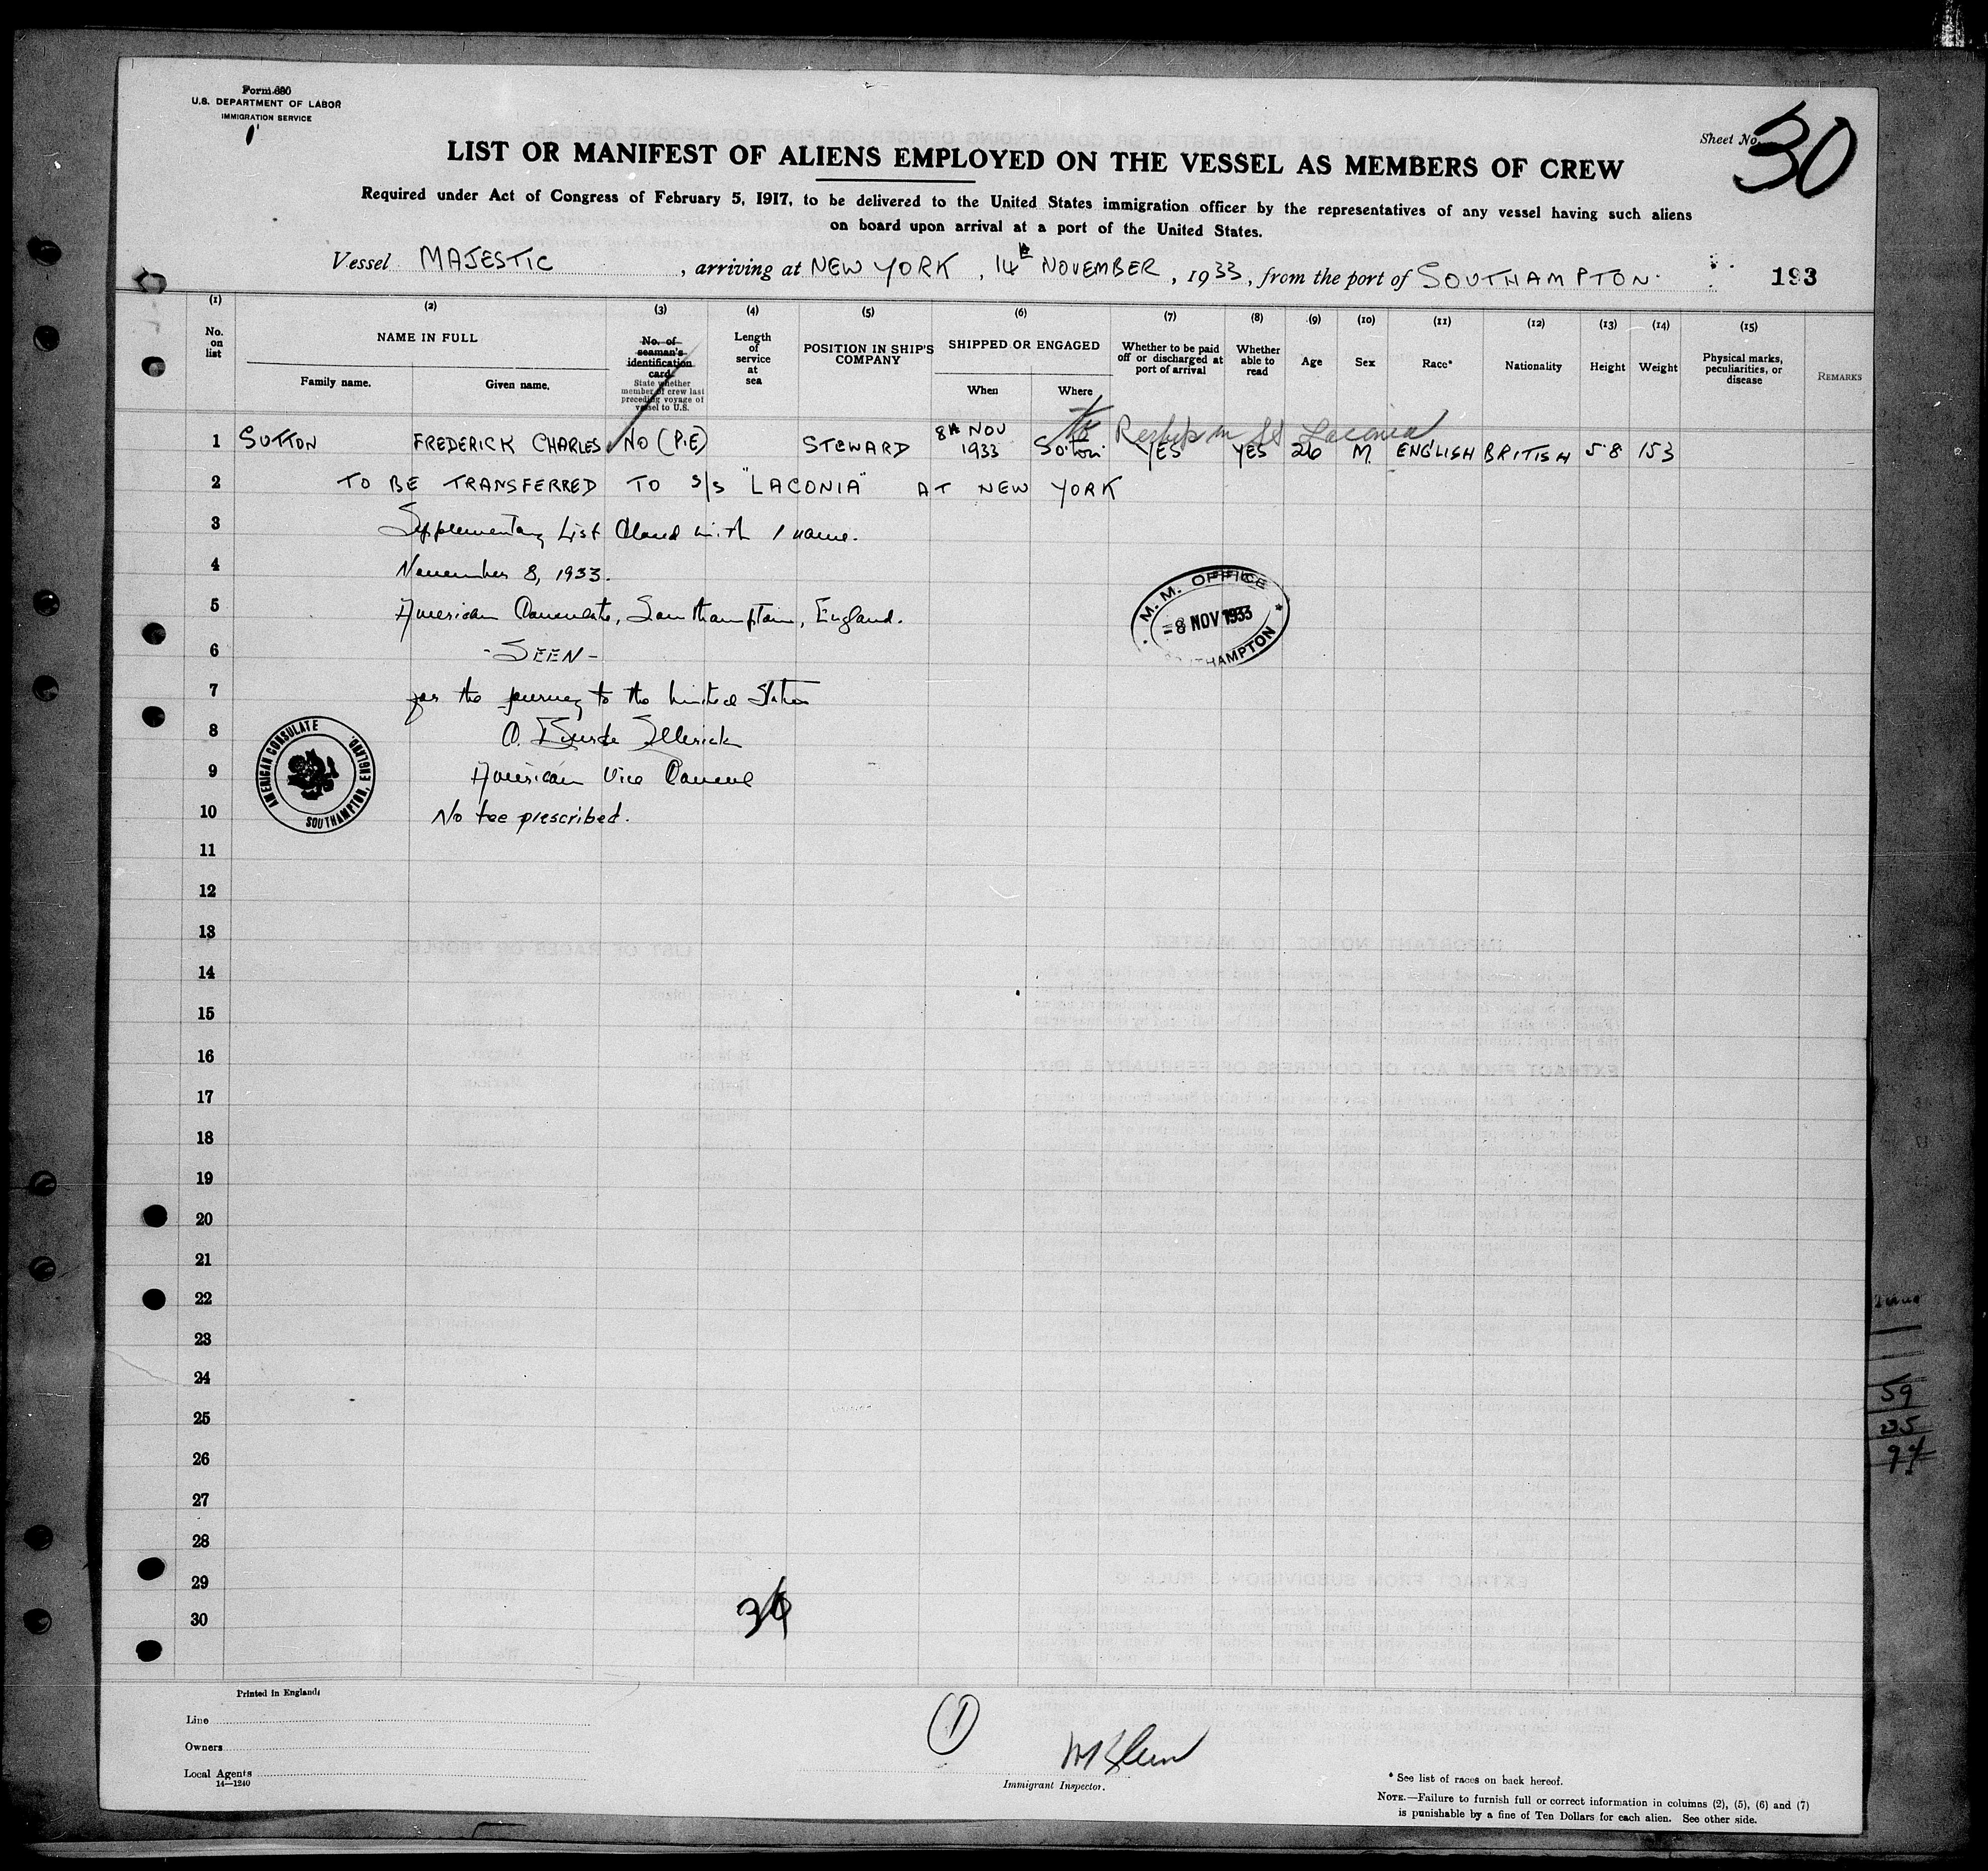 Form 680
U.S. DEPARTMENT OF LABOR
IMMIGRATION SERVICE
Sheet No. 30
LIST OR MANIFEST OF ALIENS EMPLOYED ON THE VESSEL AS MEMBERS OF CREW
Required under Act of Congress of February 5, 1917, to be delivered to the United States immigration officer by the representatives of any vessel having such aliens
on board upon arrival at a port of the United States.
Vessel MAJESTIC, arriving at NEW YORK, 14th NOVEMBER, 1933, from the port of SOUTHAMPTON. 193
(1) (2) (3) (4) (5) (6) (7) (8) (9) (10) (11) (12) (13) (14) (15)
No. on list
NAME IN FULL
Family name. Given name.
No. of seaman's identification card.
State whether member of crew last preceding voyage of vessel to U.S.
Length of service at sea
POSITION IN SHIP'S COMPANY
SHIPPED OR ENGAGED
When Where
Whether to be paid off or discharged at port of arrival
Whether able to read
Age
Sex
Race*
Nationality
Height
Weight
Physical marks, peculiarities, or disease
REMARKS
to Reship on SS Laconia
1 SUTTON FREDERICK CHARLES NO (P.E) STEWARD 8th NOV 1933 So'ton YES YES 26 M. ENGLISH BRITISH 5.8 153
2 TO BE TRANSFERRED TO S/S "LACONIA" AT NEW YORK
3 Supplementary List Closed with 1 name.
4 November 8, 1933.
5 American Consulate, Southampton, England.
6 - SEEN -
7 for the journey to the United States
8
9 American Vice Consul
10 No fee prescribed.
M. M. OFFICE
-8 NOV 1933
SOUTHAMPTON
AMERICAN CONSULATE
SOUTHAMPTON, ENGLAND.
11
12
13
14
15
16
17
18
19
20
21
22
23
24
25
26
27
28
29
30
59
35
94
Printed in England
Line
Owners
Local Agents
14—1240
1
Immigrant Inspector.
* See list of races on back hereof.
NOTE.—Failure to furnish full or correct information in columns (2), (5), (6) and (7)
is punishable by a fine of Ten Dollars for each alien. See other side.